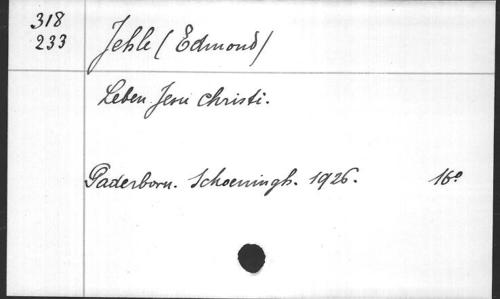 318
233
Jehle (Edmond)
Leben Jesu Christi.
Paderborn. Schoeningh. 1926. 16°